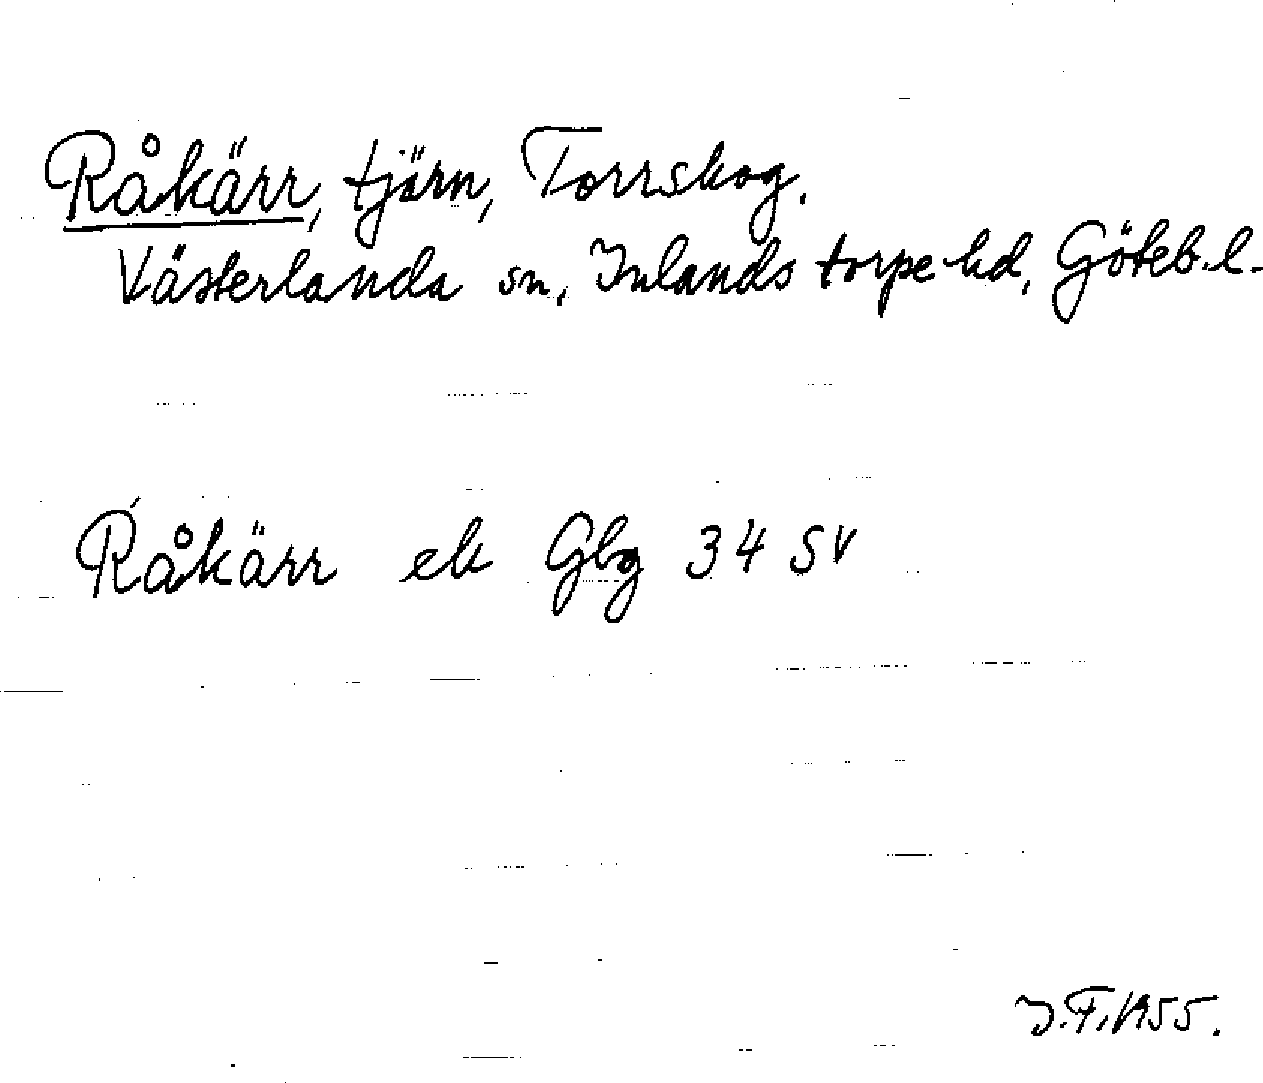 Råkärr, tjärn, Torrskog.
Västerlanda sn, Inlands torpe hd, Göteb. l.
Råkärr ek Gbg 34 SV
J.F. 1955.